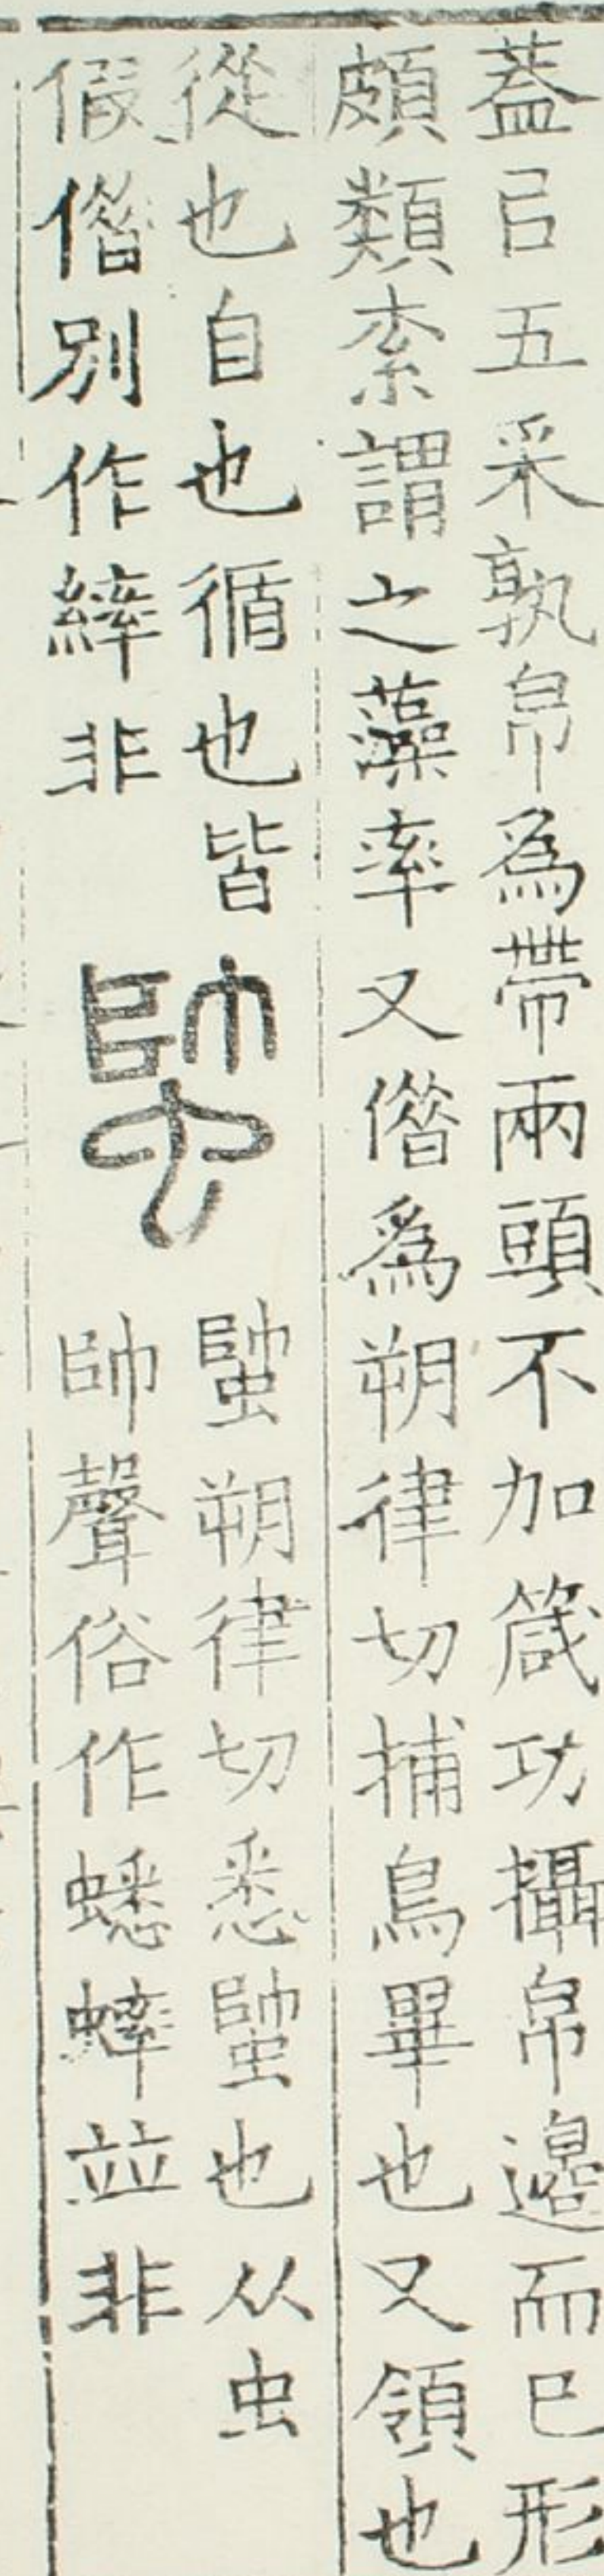 蓋㠯五采孰帛爲帶兩頭不加箴功攝帛邉而巳形
頗類索謂之藻率又偺爲朔律切捕鳥畢也又領也
從也自也循也皆
假偺別作繂非
𧍓
𧍓朔律切悉𧍓也从虫
帥聲俗作蟋蟀並非